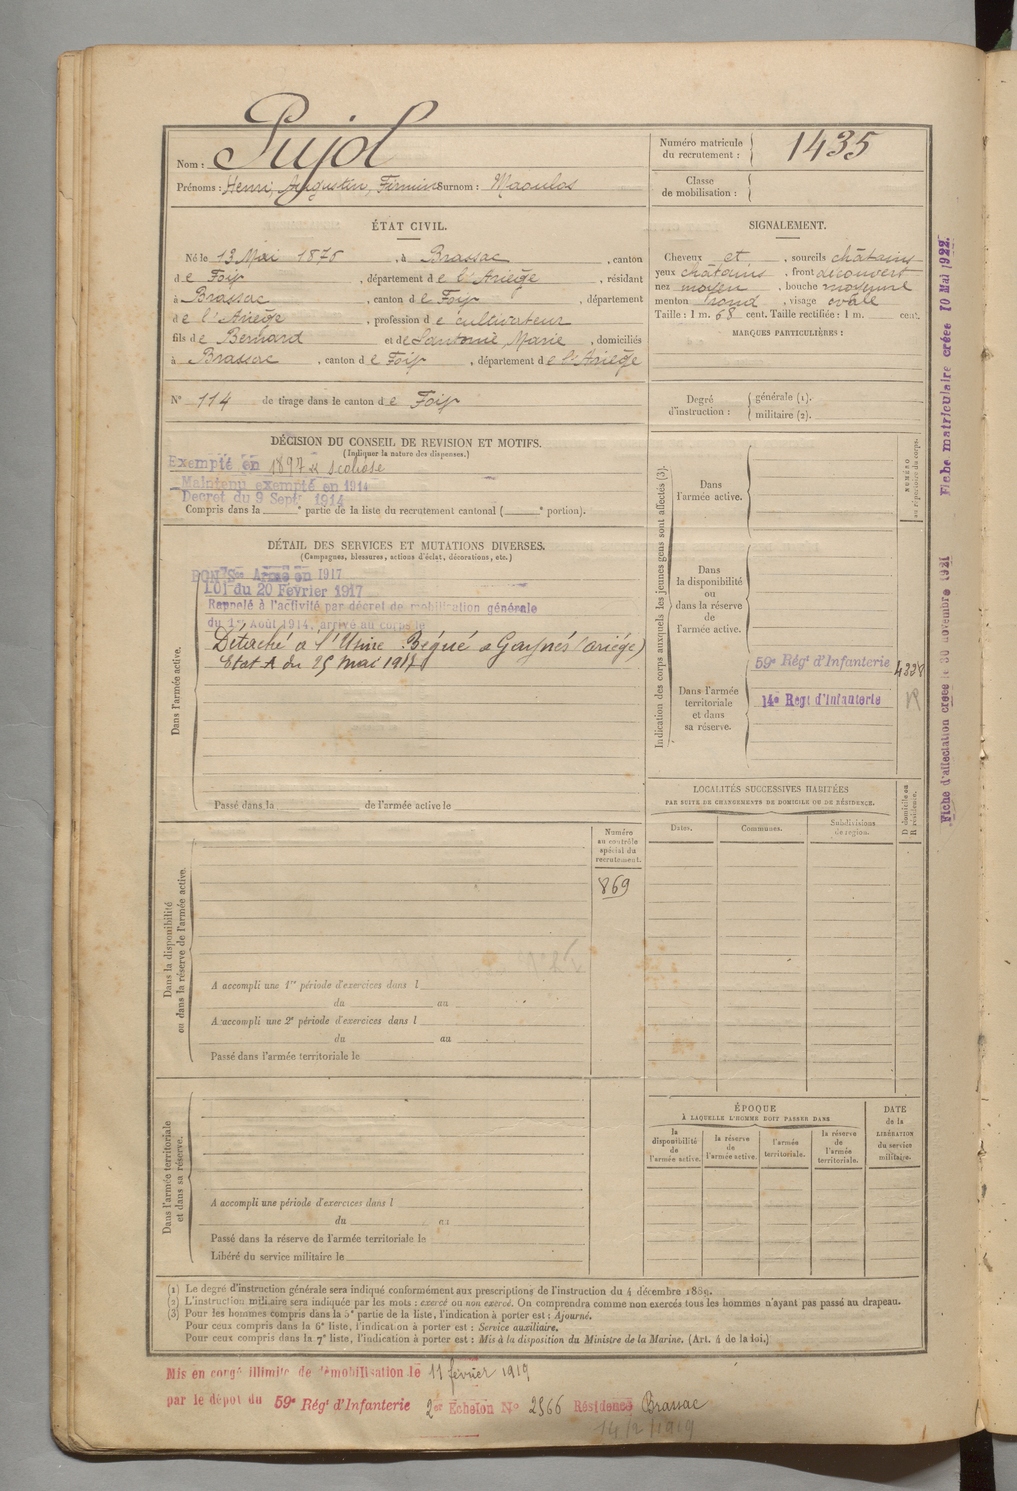 Nom : Pujol
Prénoms : Henri, Augustin, Firmin Surnom : Maoulos
Numéro matricule du recrutement : 1435
Classe de mobilisation :
ÉTAT CIVIL.
Né le 13 Mai 1876, à Brassac, canton
de Foix, département de l'Ariège, résidant
à Brassac, canton de Foix, département
de l'Ariège, profession de cultivateur
fils de Bernard et de Santomé Marie, domiciliés
à Brassac, canton de Foix, département de l'Ariège
N° 114 de tirage dans le canton de Foix
SIGNALEMENT.
Cheveux et, sourcils châtains
yeux châtains, front découvert
nez moyen, bouche moyenne
menton rond, visage ovale
Taille : 1 m. 68 cent. Taille rectifiée : 1 m. cent.
MARQUES PARTICULIÈRES :
Degré d'instruction : générale (1).
militaire (2).
DÉCISION DU CONSEIL DE REVISION ET MOTIFS.
(Indiquer la nature des dispenses.)
Exempté en 1897 scoliose
Maintenu exempté en 1914
Décret du 9 Sept 1914
Compris dans la e partie de la liste du recrutement cantonal ( e portion).
DÉTAIL DES SERVICES ET MUTATIONS DIVERSES.
(Campagnes, blessures, actions d'éclat, décorations, etc.)
BON Sce Armé en 1917
LOI du 20 Février 1917
Rappelé à l'activité par décret de mobilisation générale
du 1er Août 1914, arrivé au corps le
Détaché à l'Usine Bégué à (Ariège)
Etat A du 25 mai
Dans l'armée active.
Passé dans la de l'armée active le
Indication des corps auxquels les jeunes gens sont affectés (3).
NUMÉRO au répertoire du corps.
Dans l'armée active.
Dans la disponibilité ou dans la réserve de l'armée active.
Dans l'armée territoriale et dans sa réserve.
59e Régt d'Infanterie 4338
14e Régt d'Infanterie
LOCALITÉS SUCCESSIVES HABITÉES
PAR SUITE DE CHANGEMENTS DE DOMICILE OU DE RÉSIDENCE.
Dates. Communes. Subdivisions de région. D domicile ou R résidence.
Dans la disponibilité ou dans la réserve de l'armée active.
Numéro au contrôle spécial du recrutement.
869
A accompli une 1re période d'exercices dans l
du au
A accompli une 2e période d'exercices dans l
du au
Passé dans l'armée territoriale le
Dans l'armée territoriale et dans sa réserve.
A accompli une période d'exercices dans l
du au
Passé dans la réserve de l'armée territoriale le
Libéré du service militaire le
ÉPOQUE
À LAQUELLE L'HOMME DOIT PASSER DANS
la disponibilité de l'armée active.
la réserve de l'armée active.
l'armée territoriale.
la réserve de l'armée territoriale.
DATE de la LIBÉRATION du service militaire.
(1) Le degré d'instruction générale sera indiqué conformément aux prescriptions de l'instruction du 4 décembre 1889.
(2) L'instruction militaire sera indiquée par les mots : exercé ou non exercé. On comprendra comme non exercés tous les hommes n'ayant pas passé au drapeau.
(3) Pour les hommes compris dans la 5e partie de la liste, l'indication à porter est : Ajourné.
Pour ceux compris dans la 6e liste, l'indication à porter est : Service auxiliaire.
Pour ceux compris dans la 7e liste, l'indication à porter est : Mis à la disposition du Ministre de la Marine. (Art. 4 de la loi.)
Mis en congé illimité de démobilisation le 11 février 1919
par le dépôt du 59e Régt d'Infanterie 2e Echelon N° 2566 Résidence Brassac
14/2/1919
Fiche d'affectation créée le 30 novembre 1921
Fiche matriculaire créée 10 Mai 1922.